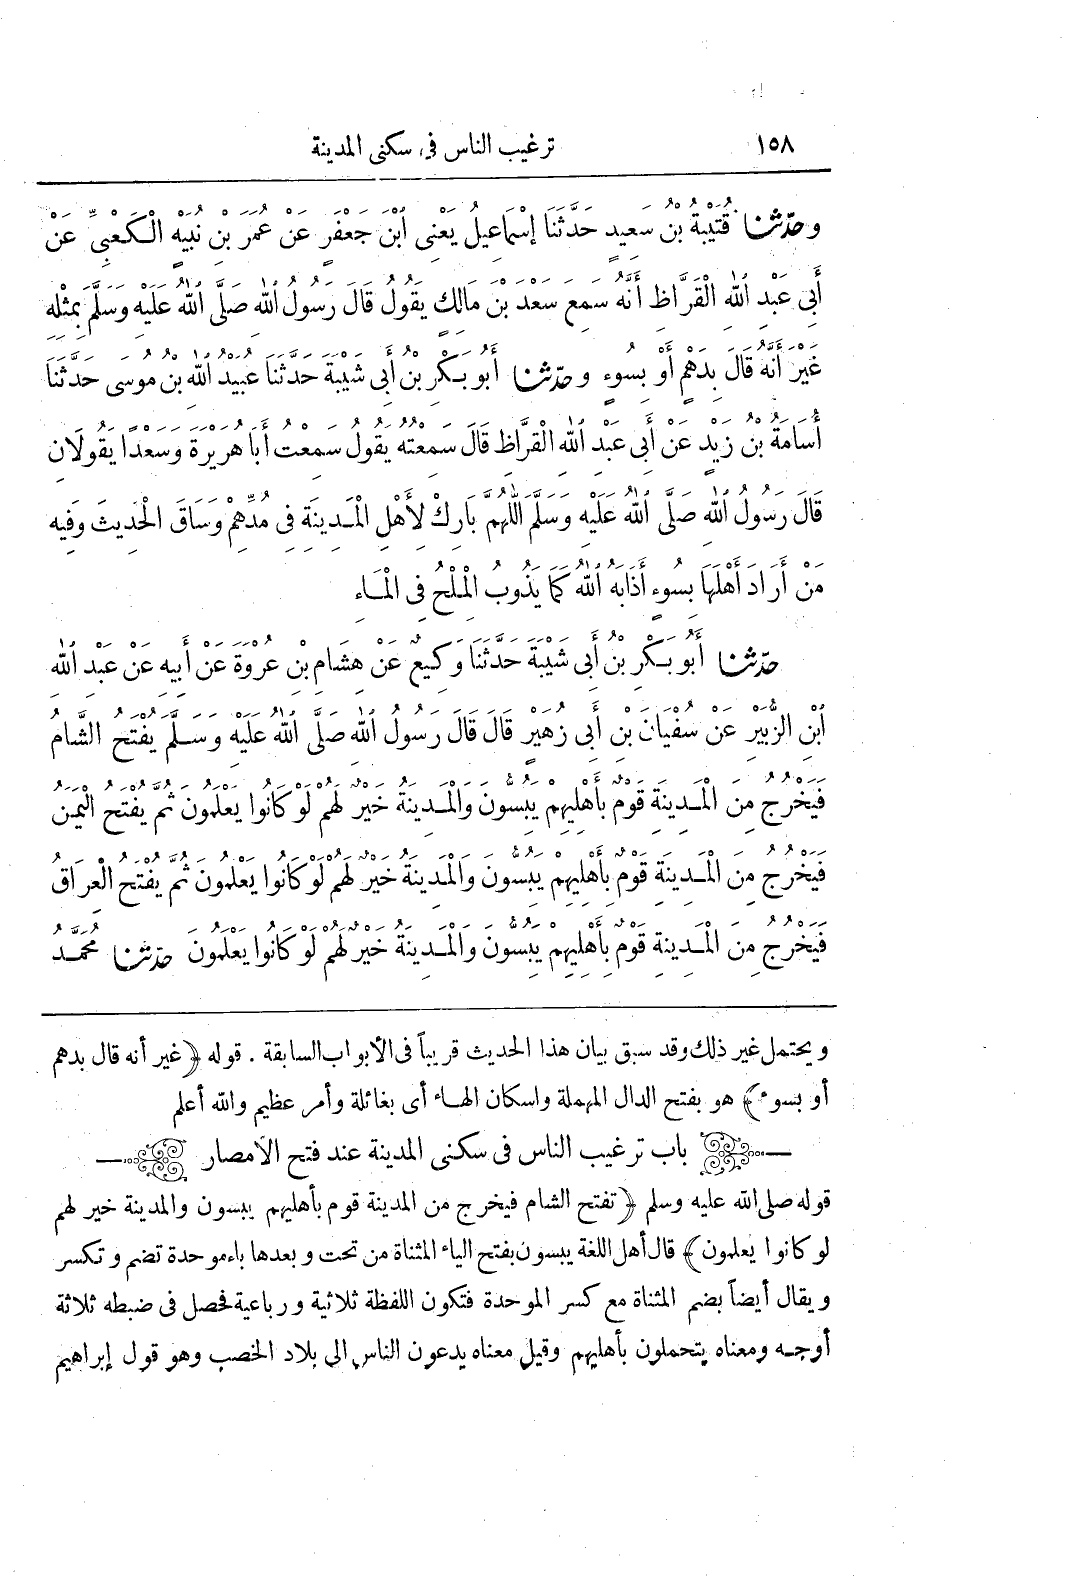 ١٥٨ ترغيب الناس في سكنى المدينة
وحَدَّثَنَا قُتَيْبَةُ بْنُ سَعِيدٍ حَدَّثَنَا إِسْمَاعِيلُ يَعْنِى ابْنَ جَعْفَرٍ عَنْ عُمَرَ بْنِ نُبَيْهٍ الْكَعْبِيِّ عَنْ
أَبِى عَبْدِ اللهِ الْقَرَّاظِ أَنَّهُ سَمِعَ سَعْدَ بْنَ مَالِكٍ يَقُولُ قَالَ رَسُولُ اللهِ صَلَّى اللهُ عَلَيْهِ وَسَلَّمَ بِمِثْلِهِ
غَيْرَ أَنَّهُ قَالَ بِدَهْمٍ أَوْ بِسُوءٍ وحَدَّثَنَا أَبُو بَكْرِ بْنُ أَبِى شَيْبَةَ حَدَّثَنَا عُبَيْدُ اللهِ بْنُ مُوسَى حَدَّثَنَا
أُسَامَةُ بْنُ زَيْدٍ عَنْ أَبِى عَبْدِ اللهِ الْقَرَّاظِ قَالَ سَمِعْتُهُ يَقُولُ سَمِعْتُ أَبَا هُرَيْرَةَ وَسَعْدًا يَقُولَانِ
قَالَ رَسُولُ اللهِ صَلَّى اللهُ عَلَيْهِ وَسَلَّمَ اللّهُمَّ بَارِكْ لِأَهْلِ الْمَدِينَةِ فِى مُدِّهِمْ وَسَاقَ الْحَدِيثَ وَفِيهِ
مَنْ أَرَادَ أَهْلَهَا بِسُوءٍ أَذَابَهُ اللهُ كَمَا يَذُوبُ الْمِلْحُ فِى الْمَاءِ
حَدَّثَنَا أَبُو بَكْرِ بْنُ أَبِى شَيْبَةَ حَدَّثَنَا وَكِيعٌ عَنْ هِشَامِ بْنِ عُرْوَةَ عَنْ أَبِيهِ عَنْ عَبْدِ اللهِ
ابْنِ الزُّبَيْرِ عَنْ سُفْيَانَ بْنِ أَبِى زُهَيْرٍ قَالَ قَالَ رَسُولُ اللهِ صَلَّى اللهُ عَلَيْهِ وَسَلَّمَ يُفْتَحُ الشَّامُ
فَيَخْرُجُ مِنَ الْمَدِينَةِ قَوْمٌ بِأَهْلِيهِمْ يَبُسُّونَ وَالْمَدِينَةُ خَيْرٌ لَهُمْ لَوْ كَانُوا يَعْلَمُونَ ثُمَّ يُفْتَحُ الْيَمَنُ
فَيَخْرُجُ مِنَ الْمَدِينَةِ قَوْمٌ بِأَهْلِيهِمْ يَبُسُّونَ وَالْمَدِينَةُ خَيْرٌ لَهُمْ لَوْ كَانُوا يَعْلَمُونَ ثُمَّ يُفْتَحُ الْعِرَاقُ
فَيَخْرُجُ مِنَ الْمَدِينَةِ قَوْمٌ بِأَهْلِيهِمْ يَبُسُّونَ وَالْمَدِينَةُ خَيْرٌ لَهُمْ لَوْ كَانُوا يَعْلَمُونَ حَدَّثَنَا مُحَمَّدُ
ويحتمل غير ذلك وقد سبق بيان هذا الحديث قريباً فى الأبواب السابقة . قوله ﴿غير أنه قال بدهم
أو بسوء﴾ هو بفتح الدال المهملة واسكان الهاء أى بغائلة وأمر عظيم والله أعلم
باب ترغيب الناس فى سكنى المدينة عند فتح الأمصار
قوله صلى الله عليه وسلم ﴿تفتح الشام فيخرج من المدينة قوم بأهليهم يبسون والمدينة خير لهم
لو كانوا يعلمون﴾ قال أهل اللغة يبسون بفتح الياء المثناة من تحت وبعدها باء موحدة تضم وتكسر
ويقال أيضاً بضم المثناة مع كسر الموحدة فتكون اللفظة ثلاثية ورباعية فحصل فى ضبطه ثلاثة
أوجه ومعناه يتحملون بأهليهم وقيل معناه يدعون الناس الى بلاد الخصب وهو قول إبراهيم